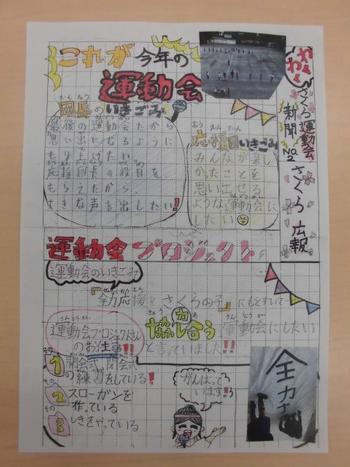 わくわく
さくら運動会
新聞 No.2
さくら広報
これが今年の
運動会
団長のいきごみ
最後の運動会だから
思い出にせるように
もらえたから
大きな声を出したい!!
応援団のいきごみ
みんなが楽し
かたことを
思い出せる
ような運動会に
したい
運動会プロジェクト
運動会のいきごみ
全力応援
さくらの子
にもとずいて
協力し合う
運動会にしたい
と言っていました!!
運動会プロジェクトさん
のお仕事!!
1 開会式閉会式
の練習をしている!!
2 スローガンを
作っている
3
がんばって
ます!!
全力